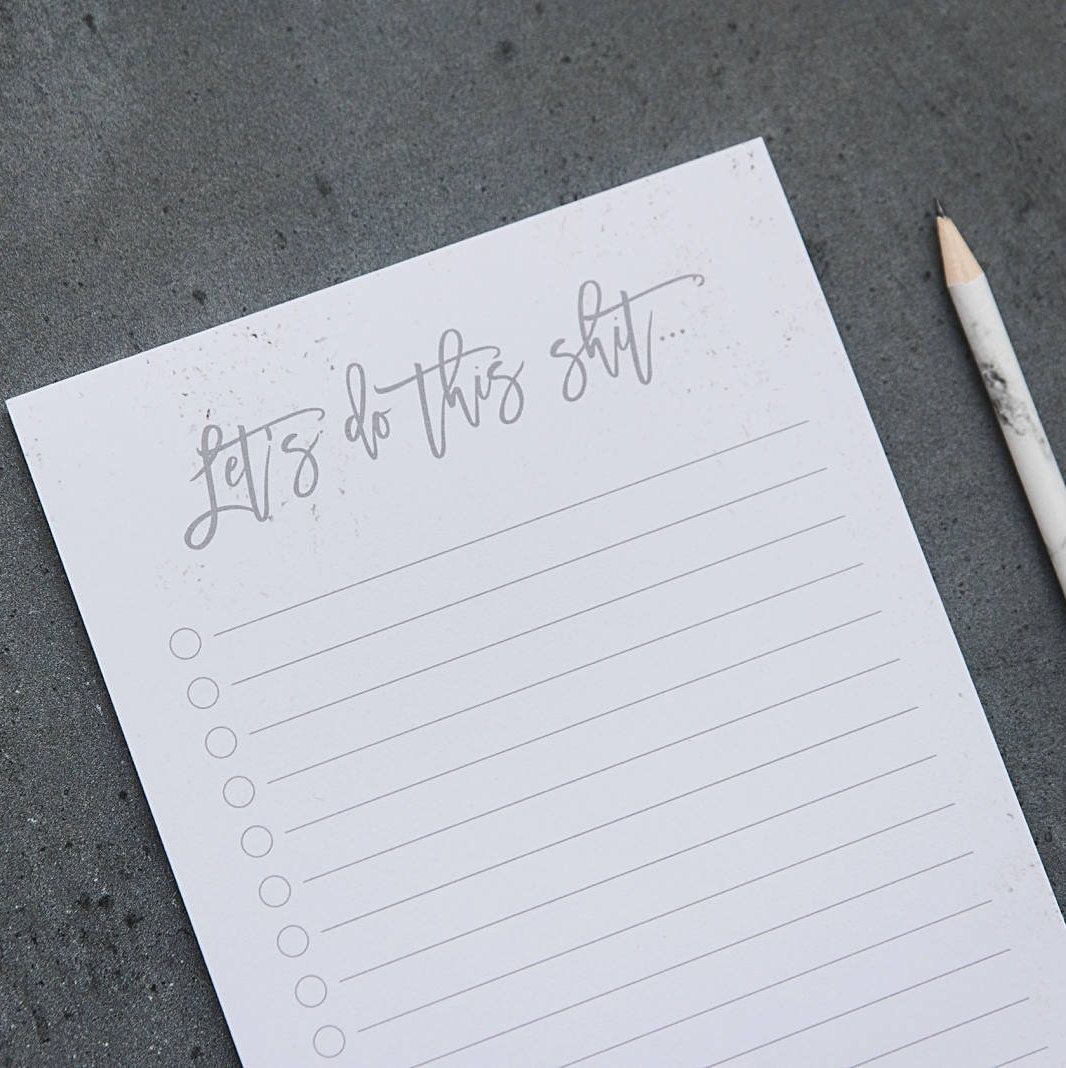 Let's do this shit...